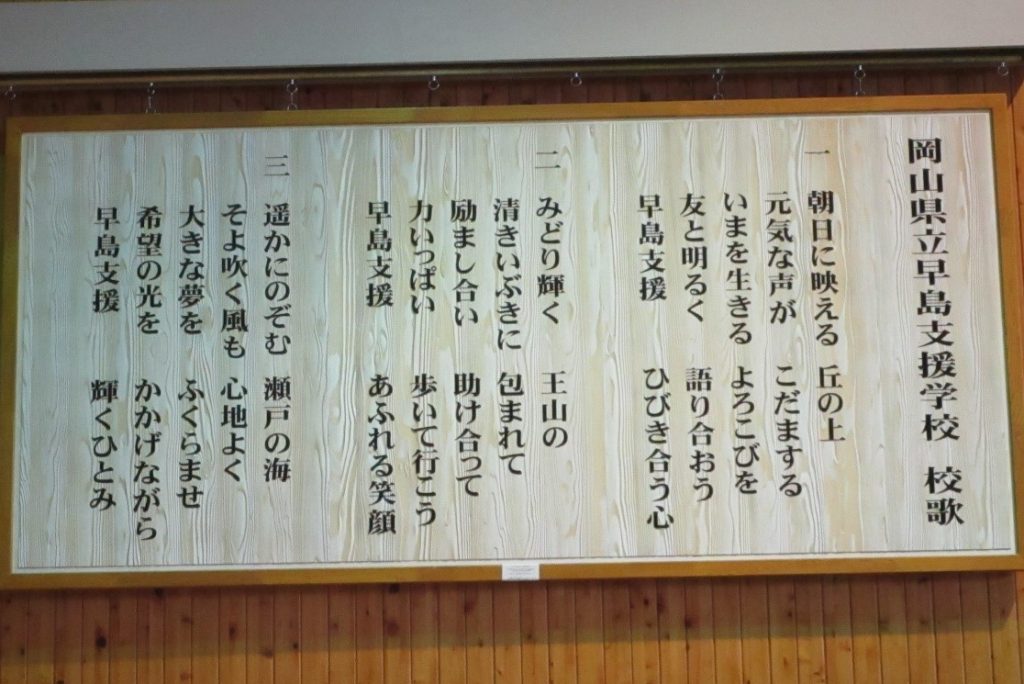 岡山県立早島支援学校 校歌
一 朝日に映える 丘の上
元気な声が こだまする
いまを生きる よろこびを
友と明るく 語り合おう
早島支援 ひびき合う心
二 みどり輝く 王山の
清きいぶきに 包まれて
励まし合い 助け合って
力いっぱい 歩いて行こう
早島支援 あふれる笑顔
三 遥かにのぞむ 瀬戸の海
そよ吹く風も 心地よく
大きな夢を ふくらませ
希望の光を かかげながら
早島支援 輝くひとみ